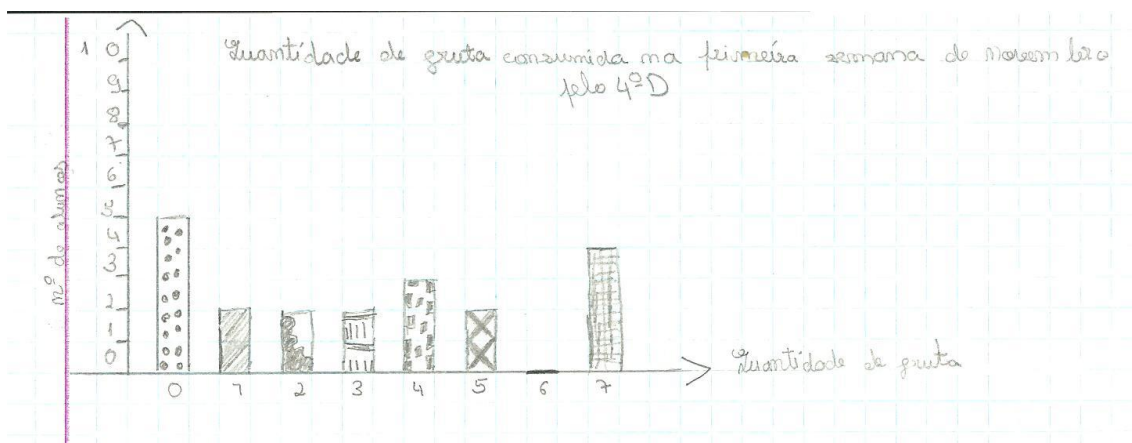 Quantidade de fruta consumida na primeira semana de Novembro
pelo 4ºD
nº de alunos
10
9
8
7
6
5
4
3
2
1
0
0 1 2 3 4 5 6 7
Quantidade de fruta